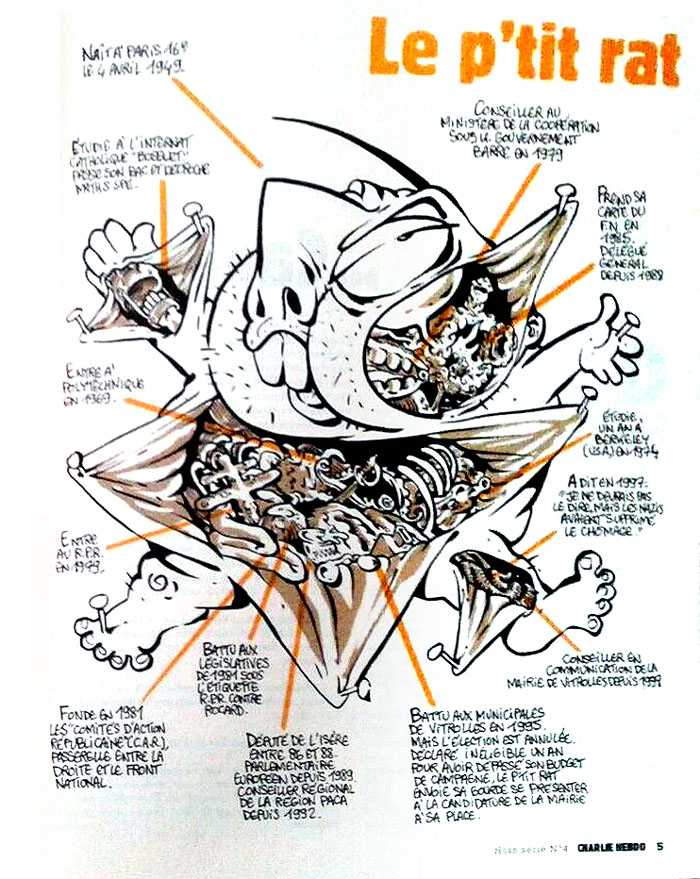 Le p'tit rat
NAÎT À PARIS 16e
LE 4 AVRIL 1949.
CONSEILLER AU
MINISTÈRE DE LA COOPÉRATION
SOUS LE GOUVERNEMENT
BARRE EN 1979
ÉTUDIE À L'INTERNAT
CATHOLIQUE "BOSSUET"
PASSE SON BAC ET DÉCROCHE
MATHS SPÉ.
PREND SA
CARTE DU
F.N EN
1985.
DÉLÉGUÉ
GÉNÉRAL
DEPUIS 1988
ENTRE À
POLYTECHNIQUE
EN 1969.
ÉTUDIE,
UN AN À
BERKELEY
(USA) EN 1974
A DIT EN 1997:
"JE NE DEVRAIS PAS
LE DIRE, MAIS LES NAZIS
AVAIENT SUPPRIMÉ
LE CHÔMAGE."
ENTRE
AU R.P.R.
EN 1979.
CONSEILLER EN
COMMUNICATION DE LA
MAIRIE DE VITROLLES DEPUIS
BATTU AUX
LÉGISLATIVES
DE 1981 SOUS
L'ÉTIQUETTE
R.P.R. CONTRE
ROCARD.
FONDE EN 1981
LES "COMITÉS D'ACTION
RÉPUBLICAINE" (C.A.R.),
PASSERELLE ENTRE LA
DROITE ET LE FRONT
NATIONAL.
DÉPUTÉ DE L'ISÈRE
ENTRE 86 ET 88.
PARLEMENTAIRE
EUROPÉEN DEPUIS 1989.
CONSEILLER RÉGIONAL
DE LA RÉGION PACA
DEPUIS 1992.
BATTU AUX MUNICIPALES
DE VITROLLES EN 1995.
MAIS L'ÉLECTION EST ANNULÉE.
DÉCLARÉ INÉLIGIBLE UN AN
POUR AVOIR DÉPASSÉ SON BUDGET
DE CAMPAGNE, LE P'TIT RAT
ENVOIE SA GOURDE SE PRÉSENTER
À LA CANDIDATURE DE LA MAIRIE
À SA PLACE.
Hors série N°4 CHARLIE HEBDO 5